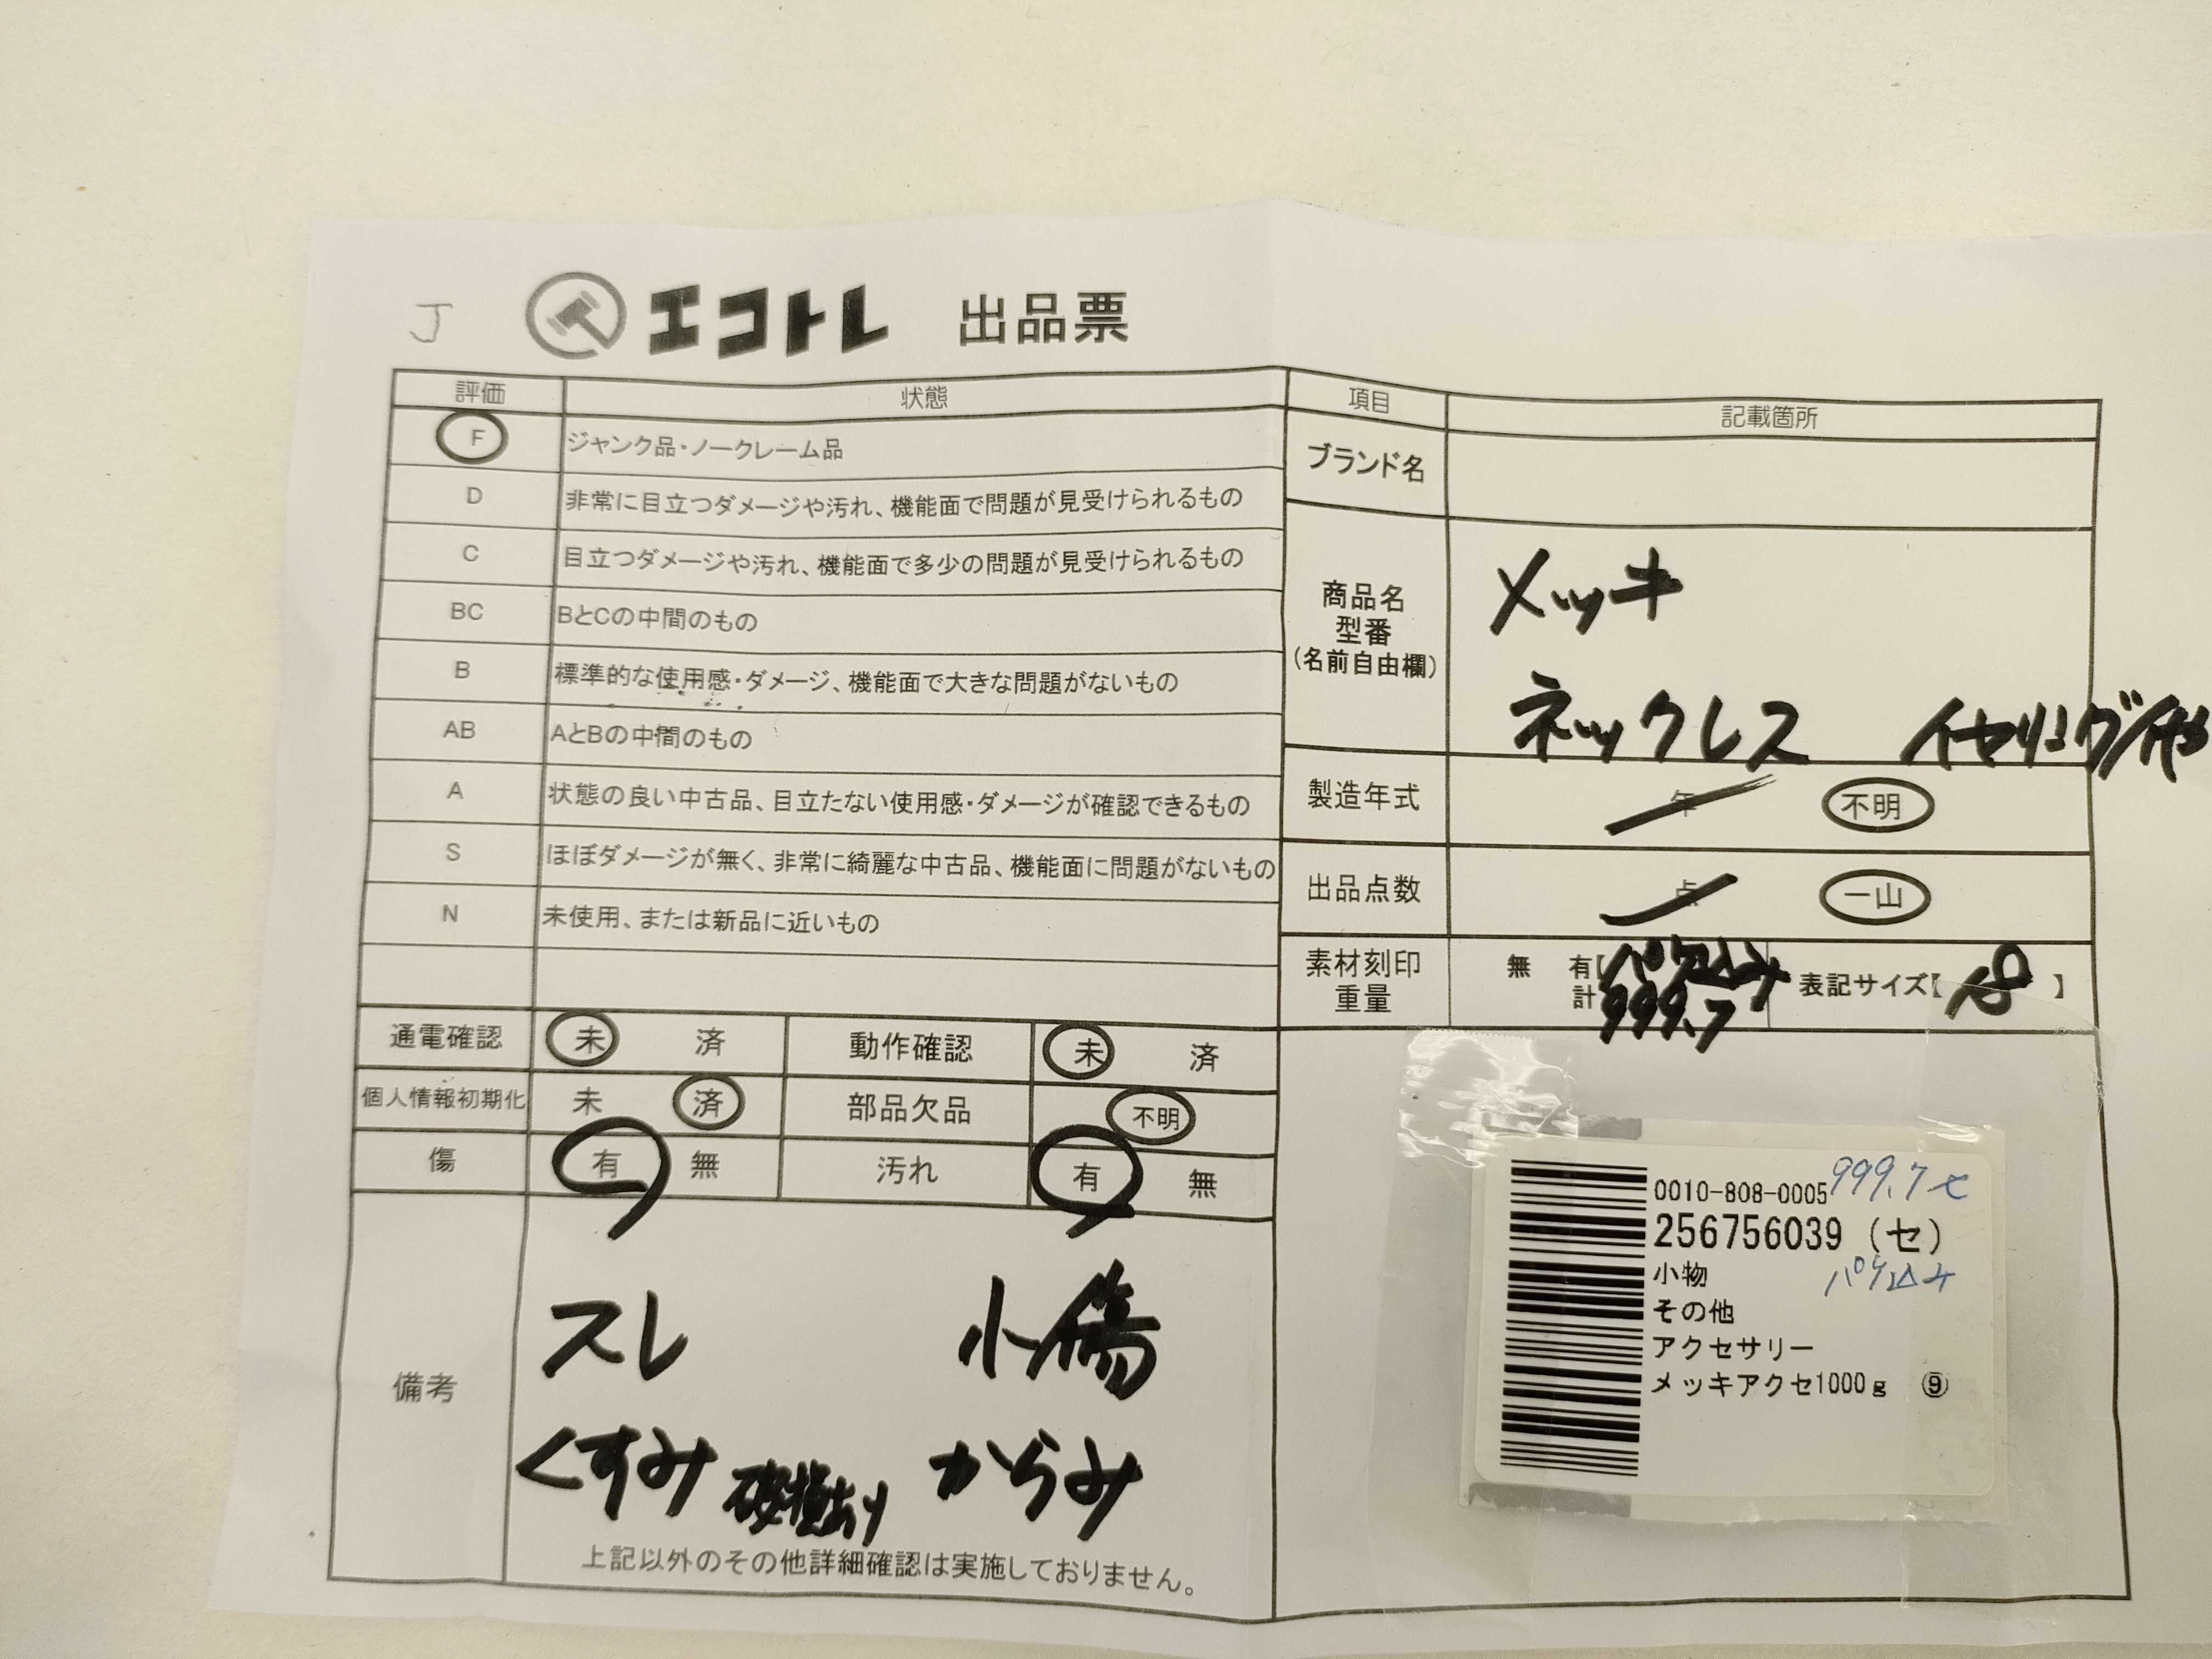 J
エコトレ 出品票
評価 状態
F ジャンク品・ノークレーム品
D 非常に目立つダメージや汚れ、機能面で問題が見受けられるもの
C 目立つダメージや汚れ、機能面で多少の問題が見受けられるもの
BC BとCの中間のもの
B 標準的な使用感・ダメージ、機能面で大きな問題がないもの
AB AとBの中間のもの
A 状態の良い中古品、目立たない使用感・ダメージが確認できるもの
S ほぼダメージが無く、非常に綺麗な中古品、機能面に問題がないもの
N 未使用、または新品に近いもの
通電確認 未 済 動作確認 未 済
個人情報初期化 未 済 部品欠品 不明
傷 有 無 汚れ 有 無
備考
スレ 小傷
くすみ 破損あり からみ
上記以外のその他詳細確認は実施しておりません。
項目 記載箇所
ブランド名
商品名
型番
(名前自由欄)
メッキ
ネックレス
製造年式 年 不明
出品点数 点 一山
素材刻印
重量
無 有【パケ込み
計 999.7
表記サイズ【 】
0010-808-0005 999.7
256756039 (セ)
小物 パケ込み
その他
アクセサリー
メッキアクセ1000g ⑨